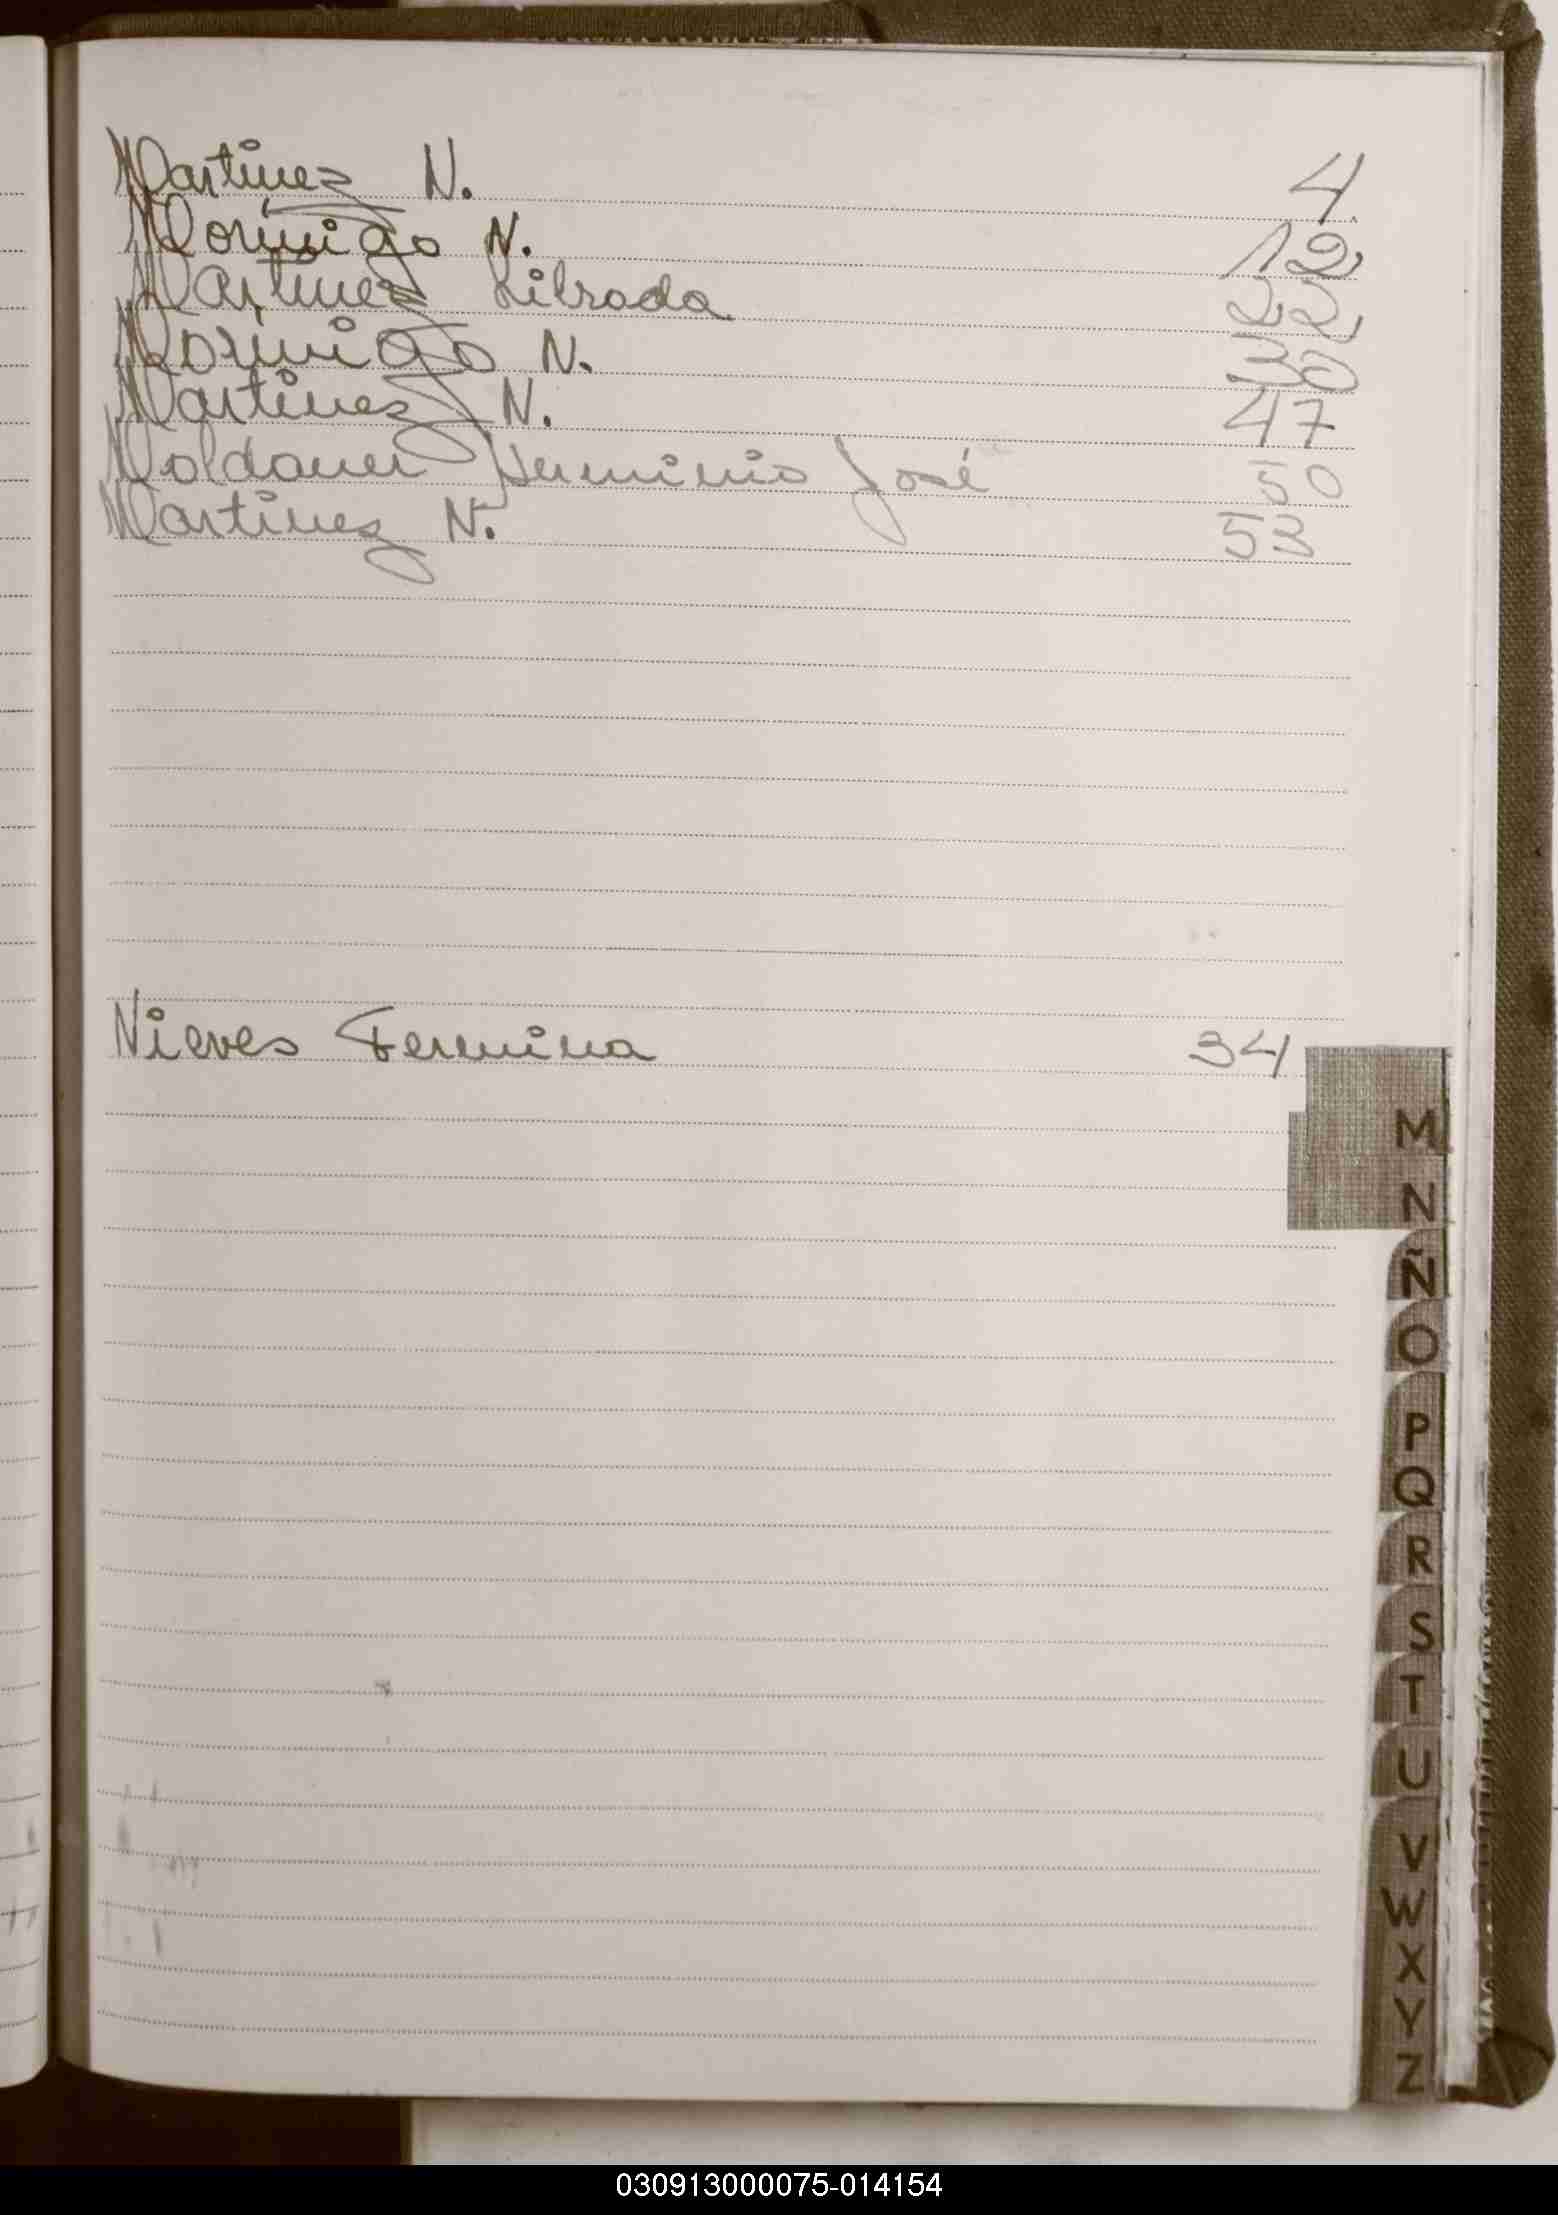 Martinez N. 4
Morínigo N. 12
Martinez Librada 22
Morinigo N. 30
Martinez N. 47
Moldauer Herminio José 50
Martinez N. 53
Nieves Fermina 34
M
N
Ñ
O
P
Q
R
S
T
U
V
W
X
Y
Z
030913000075-014154